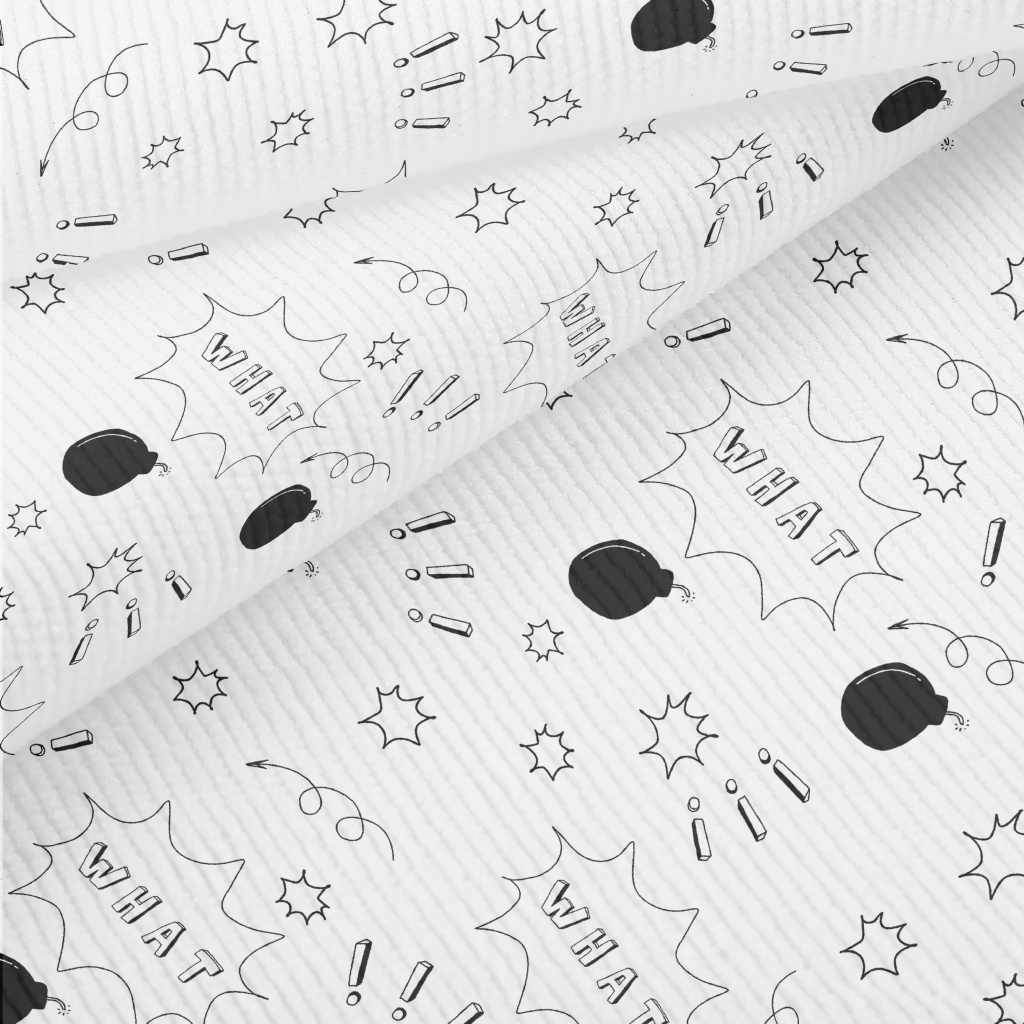 WHAT
WHAT
WHAT
WHAT
WHAT
! ! !
!
! ! !